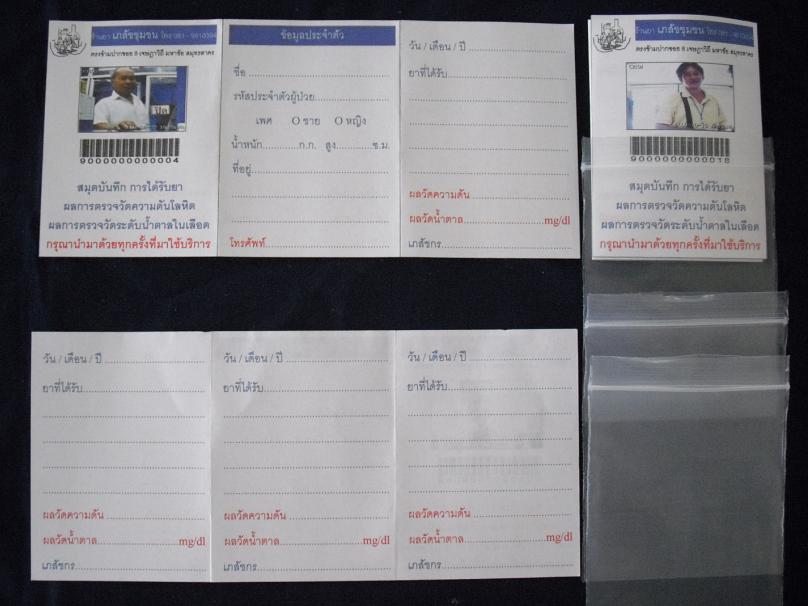 ร้านยา เภสัชชุมชน โทร 081-
ตรงข้ามปากซอย 8 เจษฎาวิถี มหาชัย สมุทรสาคร
ปิด
9000000000004
สมุดบันทึก การได้รับยา
ผลการตรวจวัดความดันโลหิต
ผลการตรวจวัดระดับน้ำตาลในเลือด
กรุณานำมาด้วยทุกครั้งที่มาใช้บริการ
ข้อมูลประจำตัว
ชื่อ
รหัสประจำตัวผู้ป่วย
เพศ O ชาย O หญิง
น้ำหนัก ก.ก. สูง ซ.ม.
ที่อยู่
โทรศัพท์
วัน / เดือน / ปี
ยาที่ได้รับ
ผลวัดความดัน
ผลวัดน้ำตาล mg/dl
เภสัชกร
ร้านยา เภสัชชุมชน โทร 081-
ตรงข้ามปากซอย 8 เจษฎาวิถี มหาชัย สมุทรสาคร
สมุดบันทึก การได้รับยา
ผลการตรวจวัดความดันโลหิต
ผลการตรวจวัดระดับน้ำตาลในเลือด
กรุณานำมาด้วยทุกครั้งที่มาใช้บริการ
วัน / เดือน / ปี
ยาที่ได้รับ
ผลวัดความดัน
ผลวัดน้ำตาล mg/dl
เภสัชกร
วัน / เดือน / ปี
ยาที่ได้รับ
ผลวัดความดัน
ผลวัดน้ำตาล mg/dl
เภสัชกร
วัน / เดือน / ปี
ยาที่ได้รับ
ผลวัดความดัน
ผลวัดน้ำตาล mg/dl
เภสัชกร